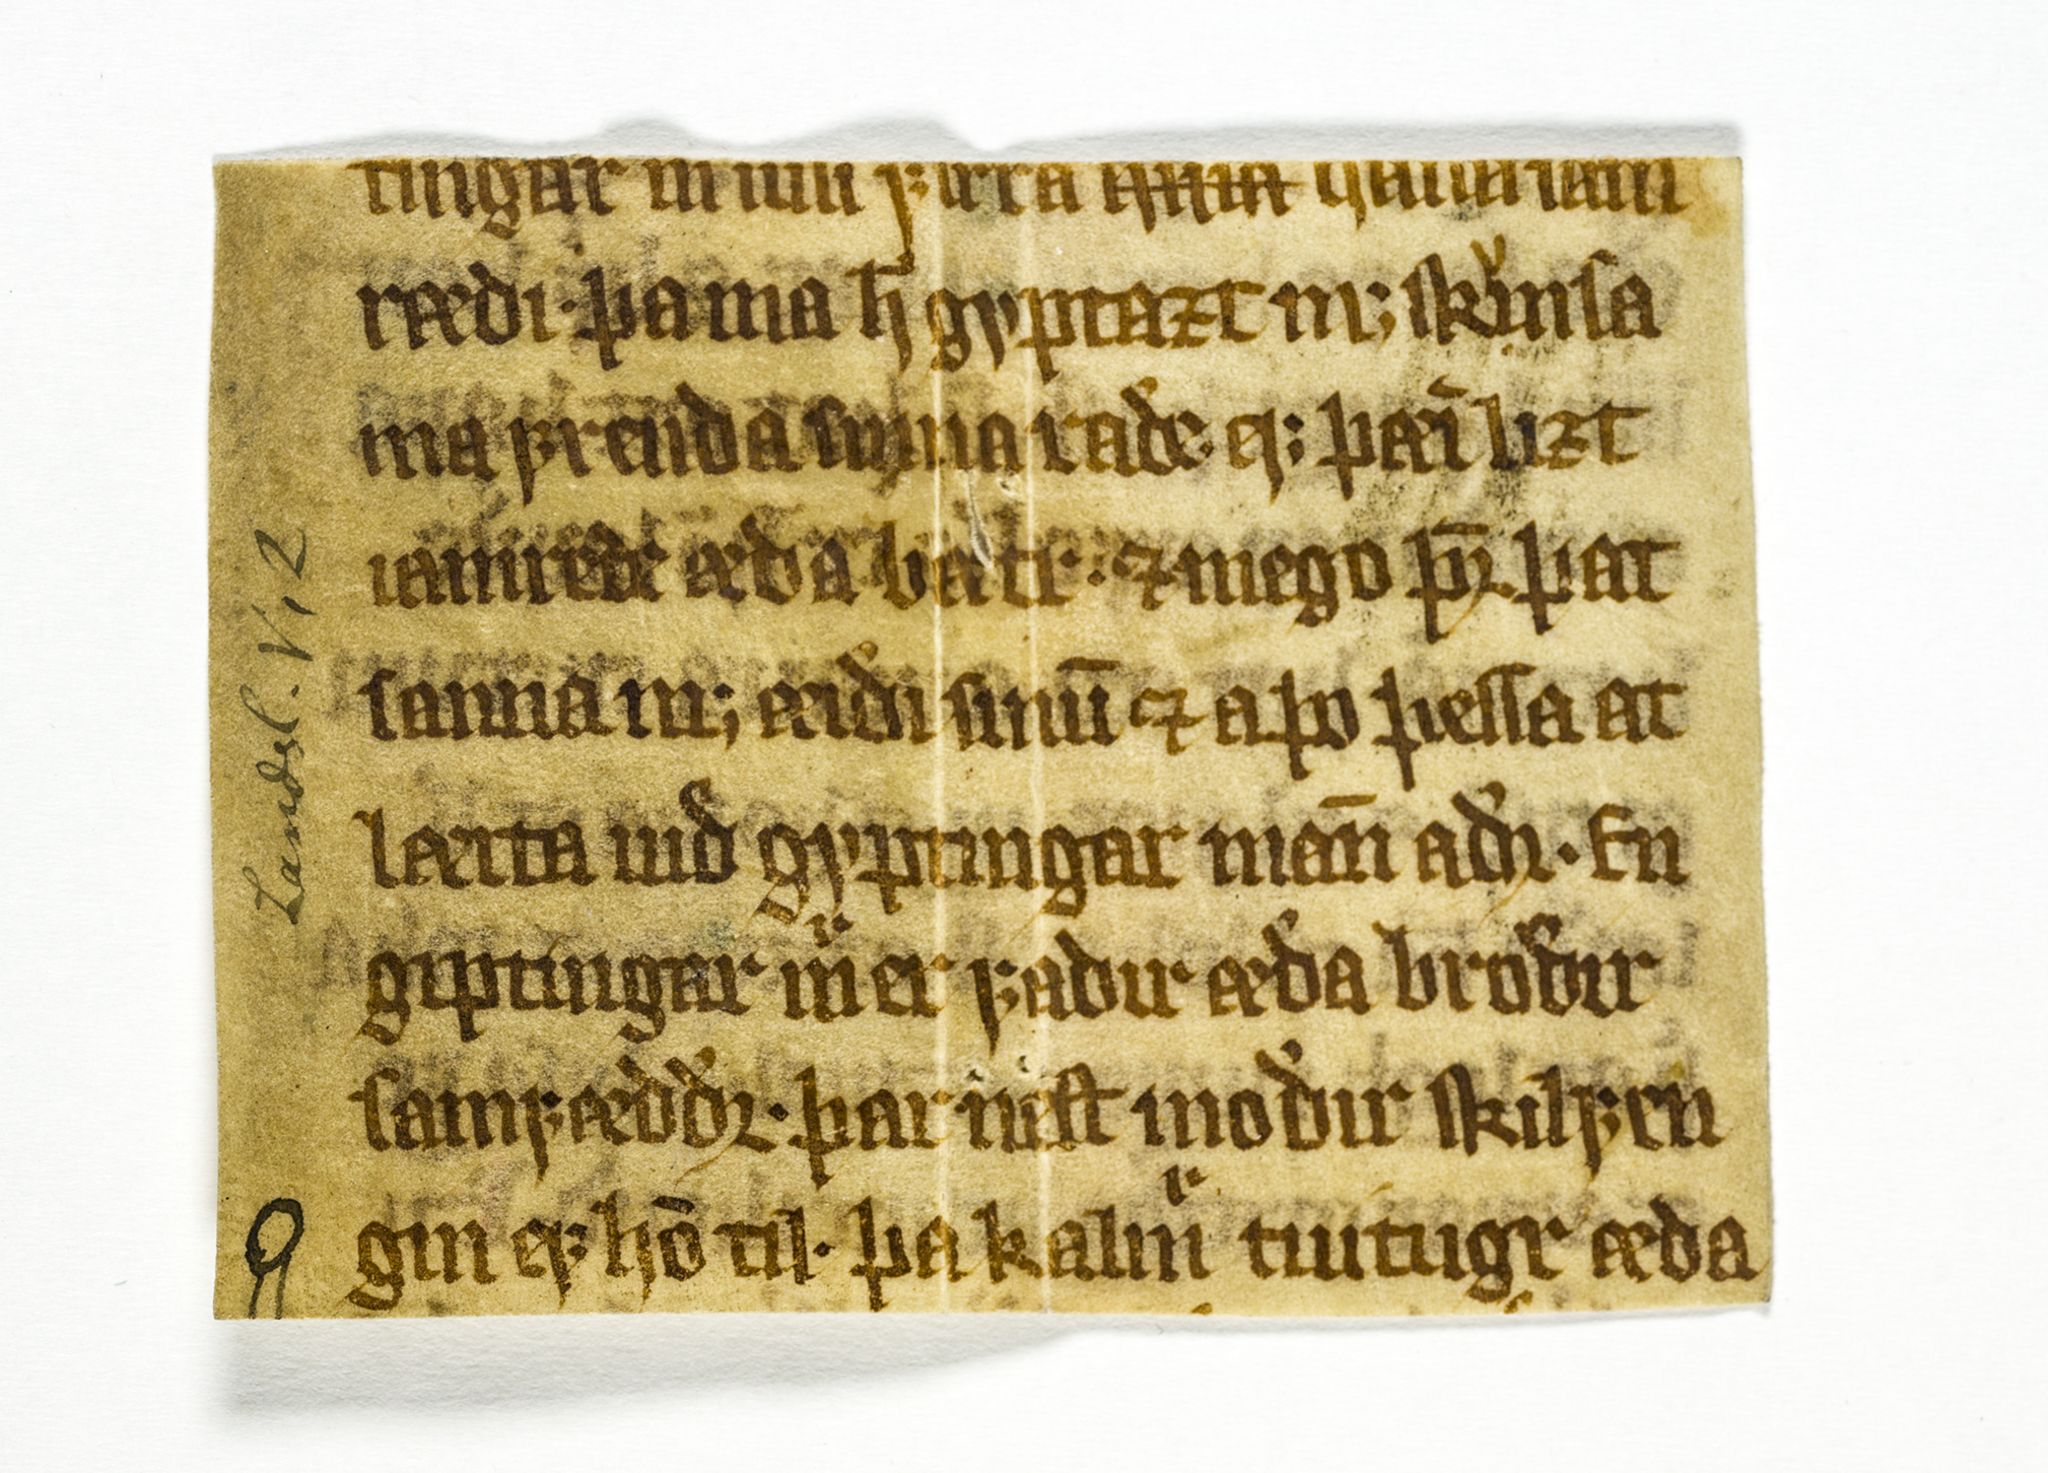 tingar m
rædi· þa ma h gyptazt m; skynsa
ma frænda sinna rade· ef þæi lizt
iamrede æda bætr· ⁊ mego þr þat
sanna m; æidi sinū ⁊ a þo þessa at
læita uid gyptingar man̄ adr· En
giptingar m er fadir æda brodir
samfæddr· þar nest modir skilfen
gin ef hō til· þa kalm tuitugr æda
Landsl. V, 2
9